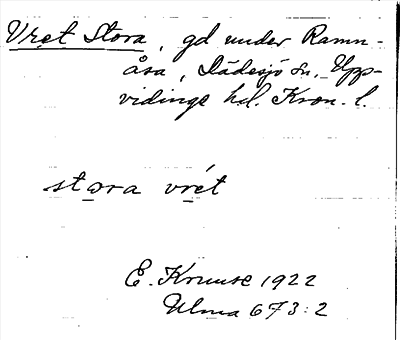 Vret Stora, gd under Ramn-
åsa, Dädesjö sn., Upp-
vidinge hd. Kron. l.
stora vrét
E. Kruuse 1922
Ulma 673:2